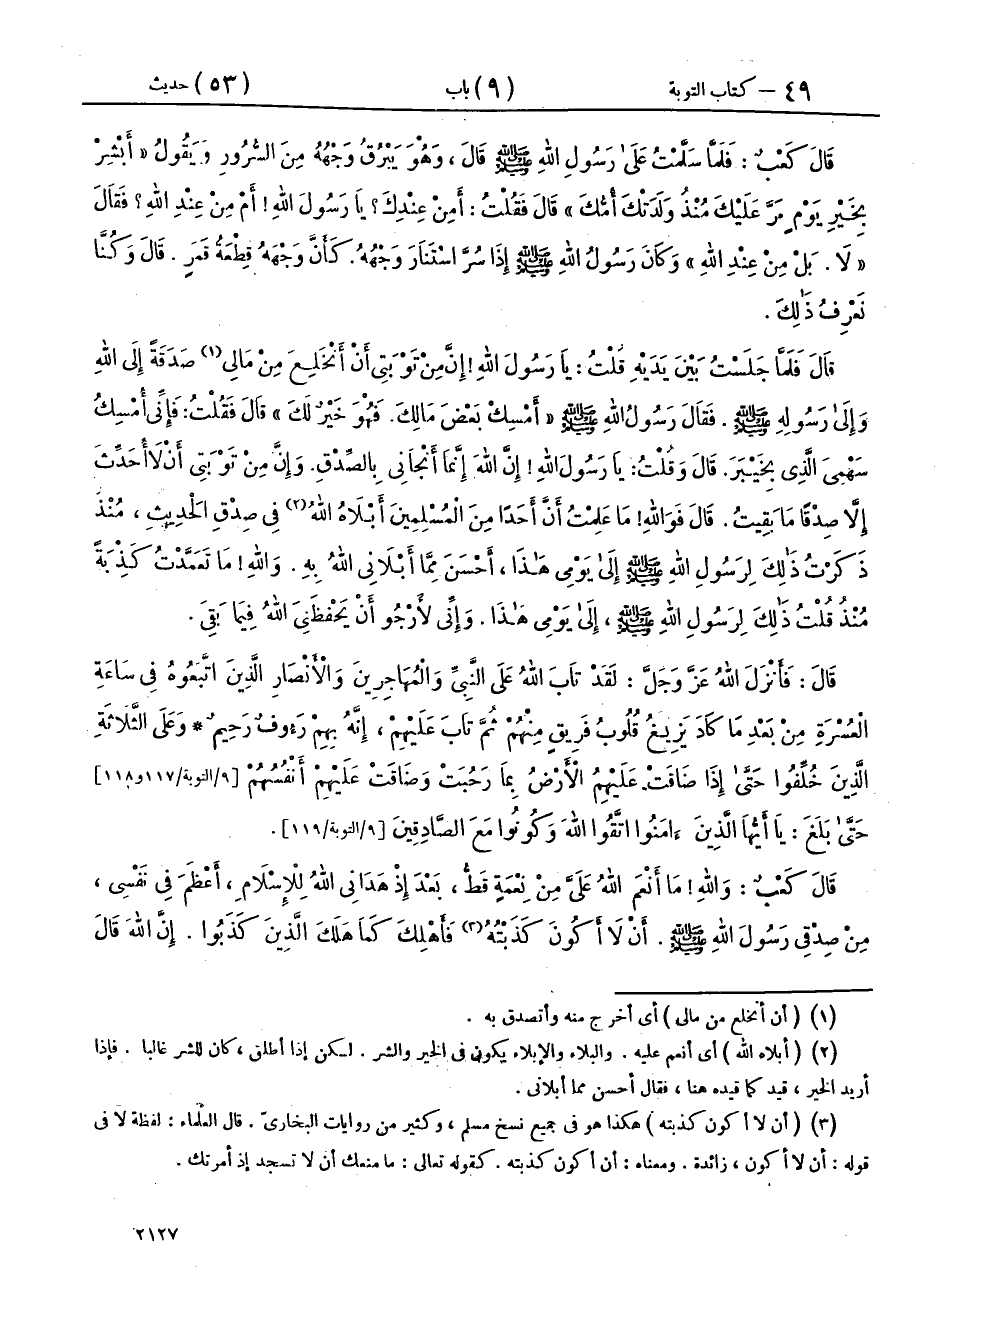 ٤٩ – كتاب التوبة (٩) باب (٥٣) حديث
قَالَ كَعْبٌ : فَلَمَّا سَلَّمْتُ عَلَىٰ رَسُولِ اللهِ ﷺ قَالَ ، وَهُوَ يَبْرُقُ وَجْهُهُ مِنَ السُّرُورِ وَيَقُولُ « أَبْشِرْ
بِخَيْرِ يَوْمٍ مَرَّ عَلَيْكَ مُنْذُ وَلَدَتْكَ أُمُّكَ » قَالَ فَقُلْتُ : أَمِنْ عِنْدِكَ ؟ يَا رَسُولَ اللهِ ! أَمْ مِنْ عِنْدِ اللهِ ؟ فَقَالَ
« لَا . بَلْ مِنْ عِنْدِ اللهِ » وَكَانَ رَسُولُ اللهِ ﷺ إِذَا سُرَّ اسْتَنَارَ وَجْهُهُ . كَأَنَّ وَجْهَهُ قِطْعَةُ قَمَرٍ . قَالَ وَكُنَّا
نَعْرِفُ ذَٰلِكَ .
قَالَ فَلَمَّا جَلَسْتُ بَيْنَ يَدَيْهِ قُلْتُ : يَا رَسُولَ اللهِ ! إِنَّ مِنْ تَوْبَتِي أَنْ أَنْخَلِعَ مِنْ مَالِي(١) صَدَقَةً إِلَى اللهِ
وَإِلَىٰ رَسُولِهِ ﷺ . فَقَالَ رَسُولُ اللهِ ﷺ « أَمْسِكْ بَعْضَ مَالِكَ . فَهُوَ خَيْرٌ لَكَ » قَالَ فَقُلْتُ : فَإِنِّي أُمْسِكُ
سَهْمِيَ الَّذِي بِخَيْبَرَ . قَالَ وَقُلْتُ : يَا رَسُولَ اللهِ ! إِنَّ اللهَ إِنَّمَا أَنْجَانِي بِالصِّدْقِ . وَإِنَّ مِنْ تَوْبَتِي أَنْ لَا أُحَدِّثَ
إِلَّا صِدْقًا مَا بَقِيتُ . قَالَ فَوَاللهِ ! مَا عَلِمْتُ أَنَّ أَحَدًا مِنَ الْمُسْلِمِينَ أَبْلَاهُ اللهُ(٢) فِي صِدْقِ الْحَدِيثِ ، مُنْذُ
ذَكَرْتُ ذَٰلِكَ لِرَسُولِ اللهِ ﷺ إِلَىٰ يَوْمِي هَٰذَا ، أَحْسَنَ مِمَّا أَبْلَانِي اللهُ بِهِ . وَاللهِ ! مَا تَعَمَّدْتُ كَذِبَةً
مُنْذُ قُلْتُ ذَٰلِكَ لِرَسُولِ اللهِ ﷺ ، إِلَىٰ يَوْمِي هَٰذَا . وَإِنِّي لَأَرْجُو أَنْ يَحْفَظَنِيَ اللهُ فِيمَا بَقِيَ .
قَالَ : فَأَنْزَلَ اللهُ عَزَّ وَجَلَّ : لَقَدْ تَابَ اللهُ عَلَى النَّبِيِّ وَالْمُهَاجِرِينَ وَالْأَنْصَارِ الَّذِينَ اتَّبَعُوهُ فِي سَاعَةِ
الْعُسْرَةِ مِنْ بَعْدِ مَا كَادَ يَزِيغُ قُلُوبُ فَرِيقٍ مِنْهُمْ ثُمَّ تَابَ عَلَيْهِمْ ، إِنَّهُ بِهِمْ رَءُوفٌ رَحِيمٌ * وَعَلَى الثَّلَاثَةِ
الَّذِينَ خُلِّفُوا حَتَّىٰ إِذَا ضَاقَتْ عَلَيْهِمُ الْأَرْضُ بِمَا رَحُبَتْ وَضَاقَتْ عَلَيْهِمْ أَنْفُسُهُمْ [٩/التوبة/١١٧و١١٨]
حَتَّىٰ بَلَغَ : يَا أَيُّهَا الَّذِينَ ءَامَنُوا اتَّقُوا اللهَ وَكُونُوا مَعَ الصَّادِقِينَ [٩/التوبة/١١٩] .
قَالَ كَعْبٌ : وَاللهِ ! مَا أَنْعَمَ اللهُ عَلَيَّ مِنْ نِعْمَةٍ قَطُّ ، بَعْدَ إِذْ هَدَانِي اللهُ لِلْإِسْلَامِ ، أَعْظَمَ فِي نَفْسِي ،
مِنْ صِدْقِي رَسُولَ اللهِ ﷺ . أَنْ لَا أَكُونَ كَذَبْتُهُ(٣) فَأَهْلِكَ كَمَا هَلَكَ الَّذِينَ كَذَبُوا . إِنَّ اللهَ قَالَ
(١) ( أن أنخلع من مالى ) أى أخرج منه وأتصدق به .
(٢) ( أبلاه الله ) أى أنعم عليه . والبلاء والإبلاء يكون فى الخير والشر . لكن إذا أطلق ، كان للشر غالبا . فإذا
أريد الخير ، قيد كما قيده هنا ، فقال أحسن مما أبلانى .
(٣) ( أن لا أكون كذبته ) هكذا هو فى جميع نسخ مسلم ، وكثير من روايات البخارىّ . قال العلماء : لفظة لا فى
قوله : أن لا أكون ، زائدة . ومعناه : أن أكون كذبته . كقوله تعالى : ما منعك أن لا تسجد إذ أمرتك .
٢١٢٧